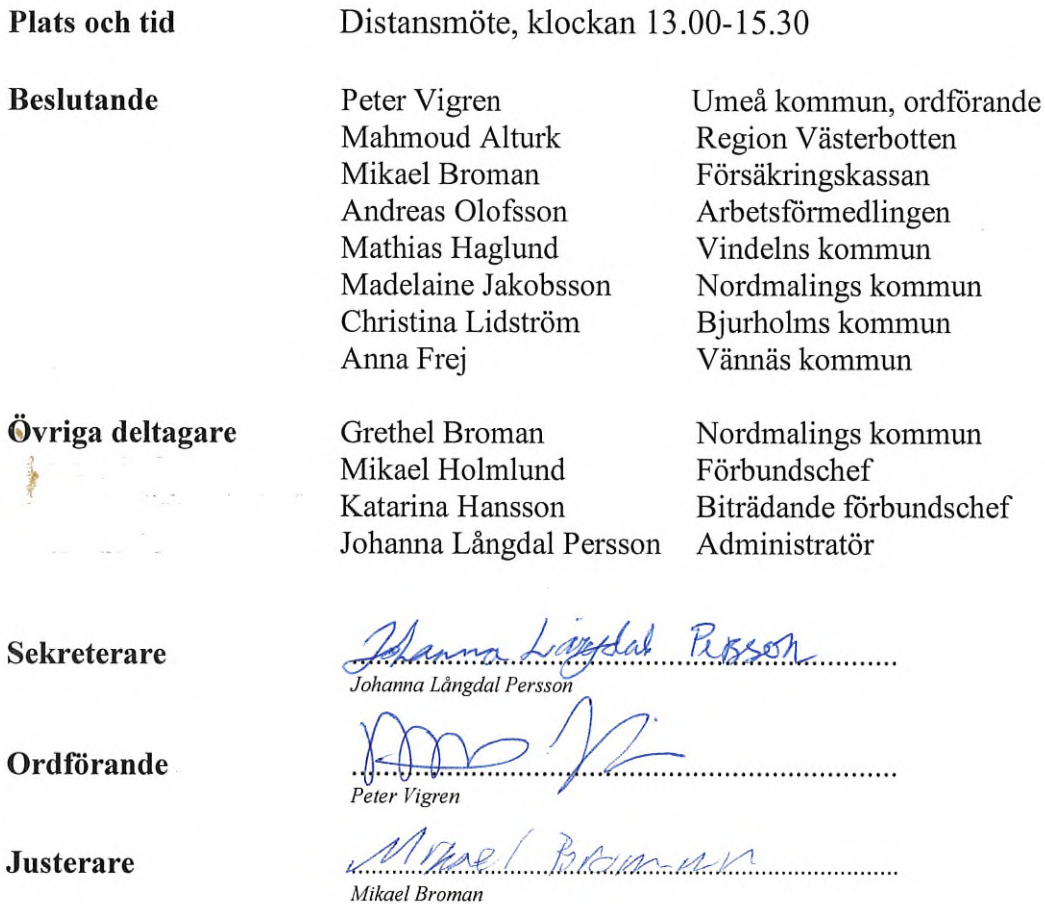 Plats och tid Distansmöte, klockan 13.00-15.30
Beslutande Peter Vigren Umeå kommun, ordförande
Mahmoud Alturk Region Västerbotten
Mikael Broman Försäkringskassan
Andreas Olofsson Arbetsförmedlingen
Mathias Haglund Vindelns kommun
Madelaine Jakobsson Nordmalings kommun
Christina Lidström Bjurholms kommun
Anna Frej Vännäs kommun
Övriga deltagare Grethel Broman Nordmalings kommun
Mikael Holmlund Förbundschef
Katarina Hansson Biträdande förbundschef
Johanna Långdal Persson Administratör
Sekreterare Johanna Långdal Persson
Johanna Långdal Persson
Ordförande
Peter Vigren
Justerare Mikael Broman
Mikael Broman